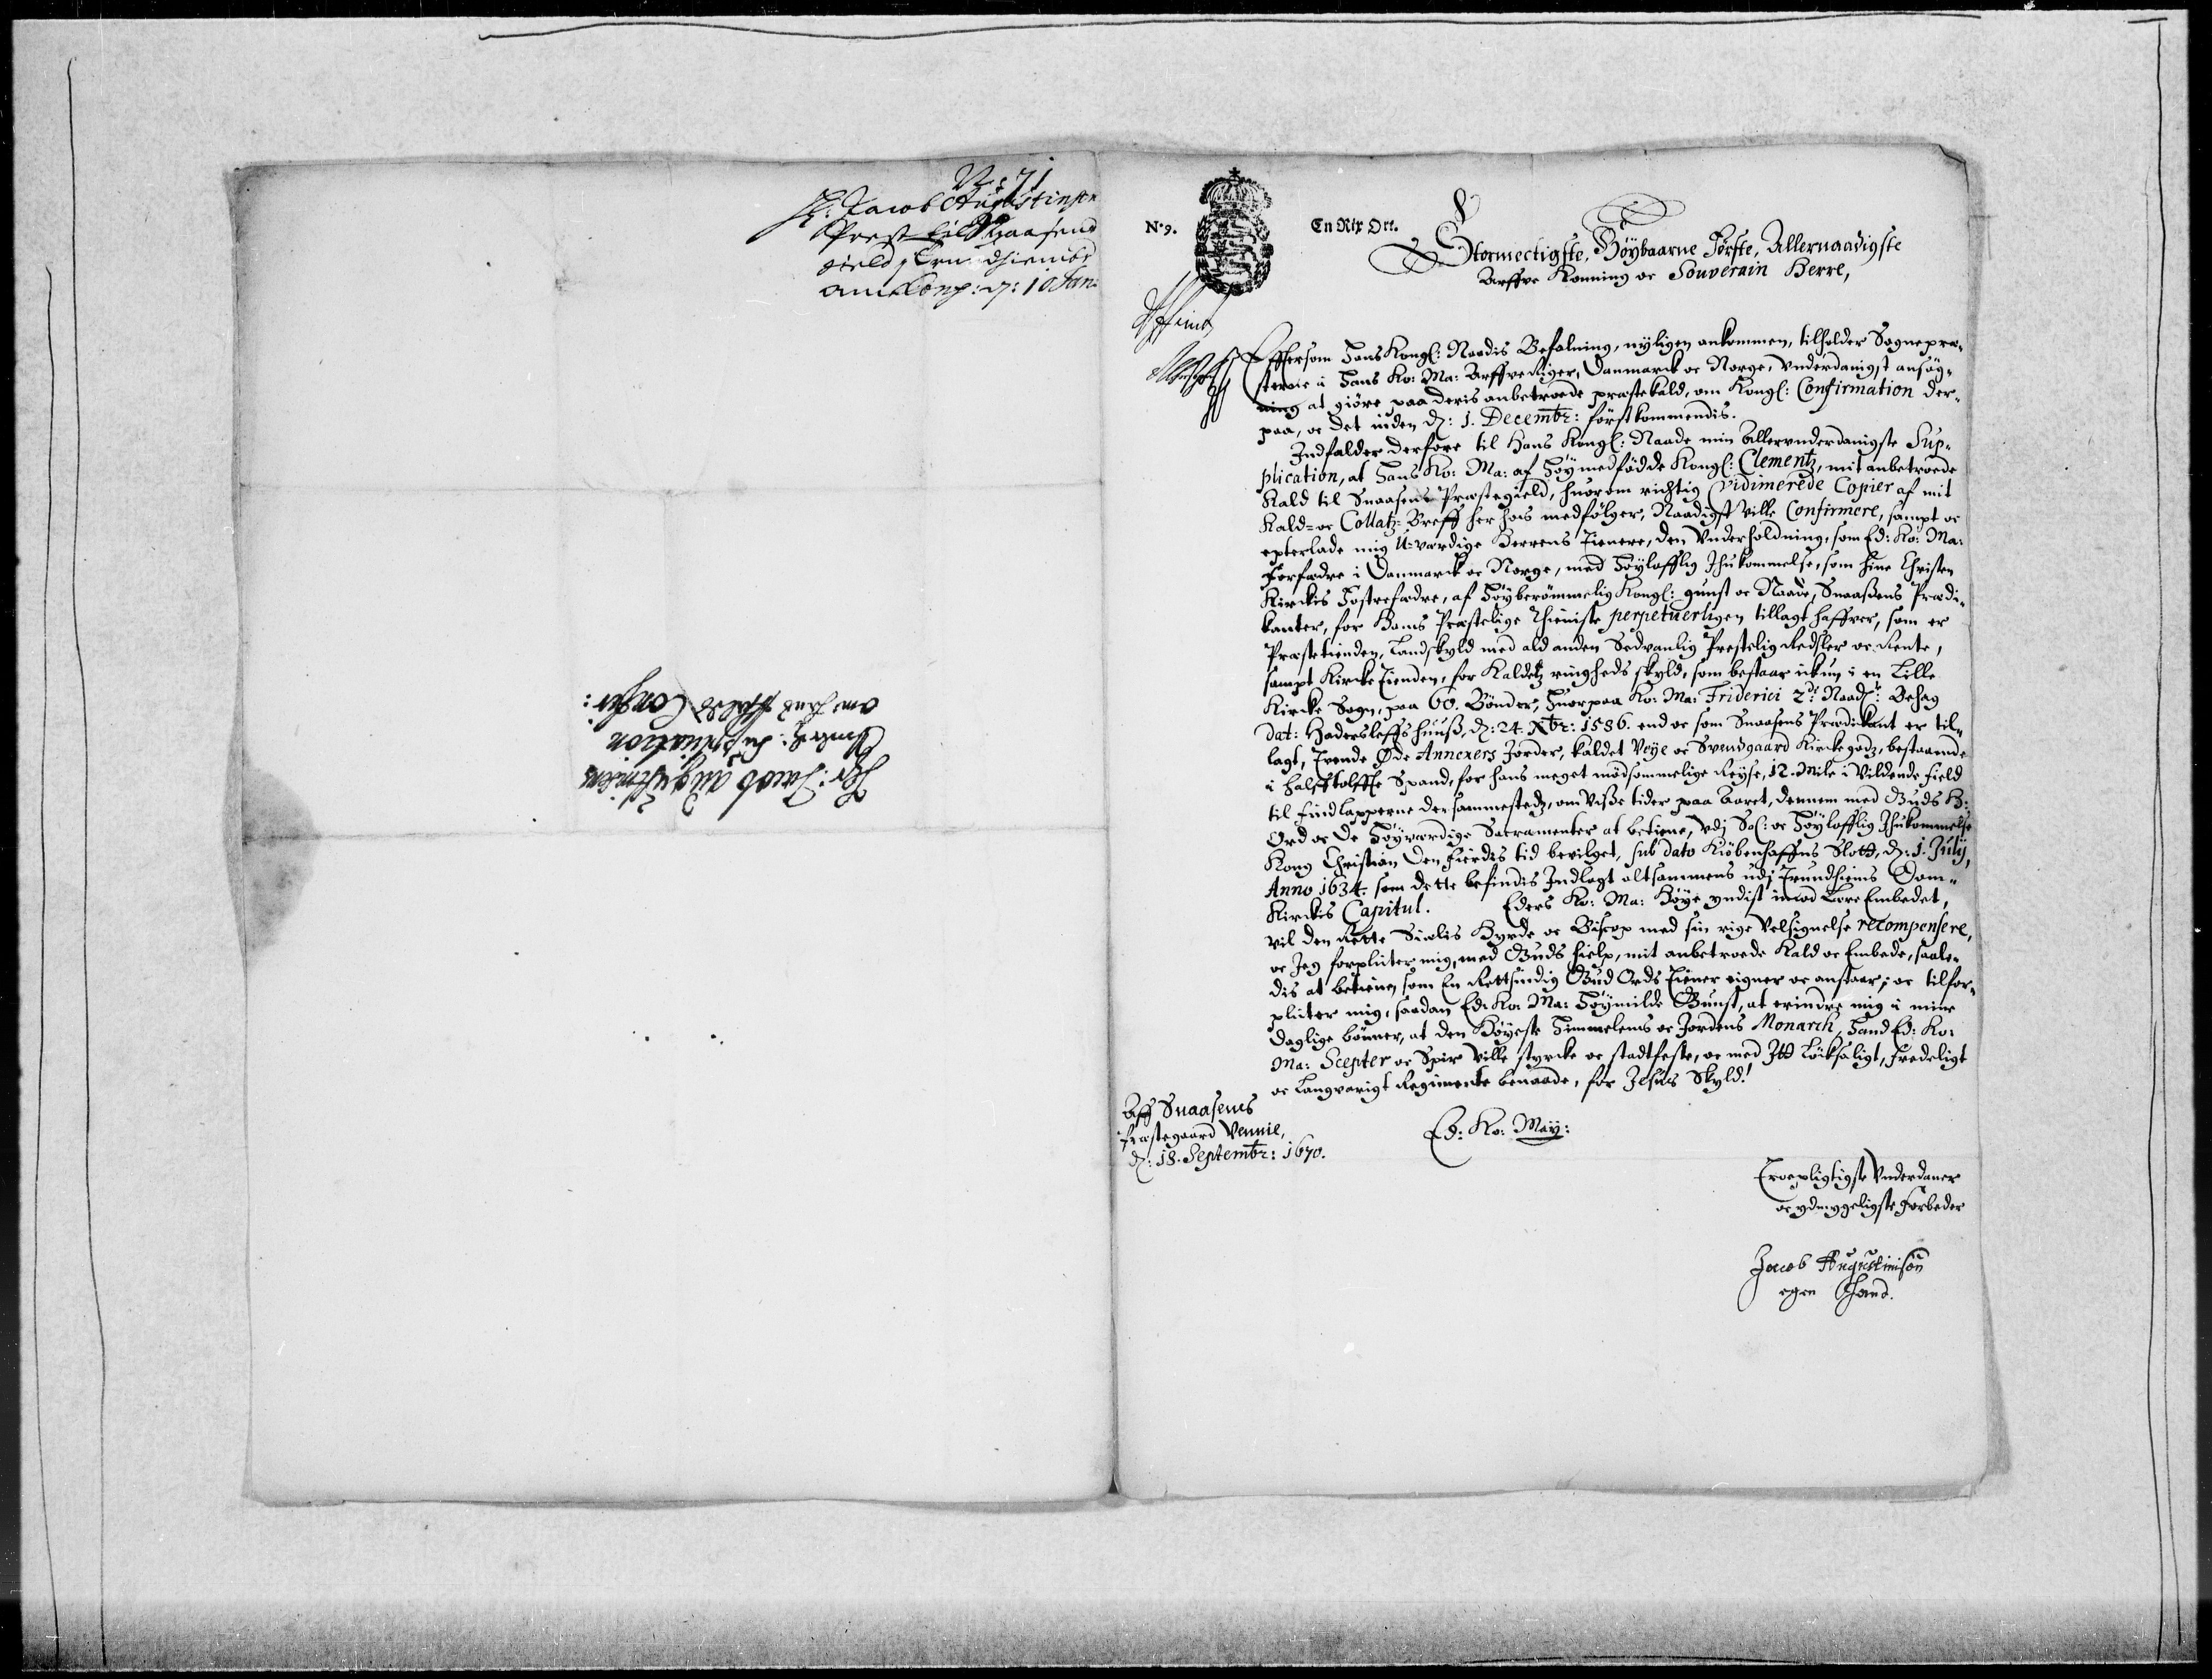 No: 71
H: Jacob Augustinsen
Prest til Snaasens
gield i Trundhiembs
ampt Conf: d: 10 Jan:
Her: Jacob Augustinsens
Underd: Supplication
om hans Kald Confir:
N.o 9.
En Rix Ort.
Stormectigste, Høÿbaarne Første, Allernaadigste
Arffve Konning oc Souverain Herre,
Effthersom Hans Kongl: Naadis Befalning, nyligen ankommen, tilholder Sognepræ-
sterne i Hans Ko: Ma: Arffve Riger, Danmarck oc Norge, Underdanigst ansøg-
ning at giøre paa deris anbetroede præstekald, om Kongl: Confirmation der-
paa, oc det inden d: 1. Decembr: først kommendis.
Indfalder derfore til Hans Kongl: Naade min Allerunderdanigste Sup-
plication, at Hans Ko: Ma: af Høÿ medfødde Kongl: Clementz, mit anbetroede
Kald til Snaasens Præstegield, huorom richtig Vidimerede Copier af mit
Kald- oc Collatz- Breff her hos medfølger, Naadigst ville Confirmere, sampt oc
epterlade mig U-værdige Herrens Tienere, den Underholdning, som Ed: Ko: Ma:
Forfædre i Danmarck oc Norge, med Høÿlofflig Ihukommelse, som hine Christen
Kirckis Fosterfædre, af Høÿberømmelig Kongl: gunst oc Naade, Snaaßens Prædi-
kanter, for Hans Præstelige Thieniste perpetuerligen tillagt haffver, som er
Præstetienden, Landskyld med ald anden Sedvanlig Prestelig Redsler oc Rente,
sampt Kircke Tienden, for Kaldetz ringheds skyld, som bestaar ikun i en Lille
Kircke Sogn, paa 60. Bønder, Huorpaa Ko: Ma: Friderici 2di Naadt: Besag
Dat: Hadersleffs huuß, d: 24. Xbr: 1586. end oc som Snaasens Prædikant er til-
lagt, Tvende Øde Annexers Jorder, kaldet Veye oc Svendgaard Kirckegodz, bestaaende
i halfftolffte Spand, for hans meget mødsommelige Reyse, 12. Mile i Vildende Field
til Findlapperne dersammestedz, om Visse tider paa Aaret, dennem med Guds H:
Ord oc De Høÿværdige Sacramenter at betiene, Udj Sal: oc Høÿloffllig Ihukommelse
Kong Christian Den Fierdis tid bevilget, sub dato Kiøbenhaffns Slott, d: 1. Julÿ,
Anno 1634. som dette befindis Indlagt altsammens udj Trundhiems Dom-
Kirckis Capitul. Eders Ko: Ma: Høÿe yndist imod Lære Embedet,
vil den Rette Siælis Hyrde oc Biscop med sin rige Velsignelse recompensere,
oc Jeg forplicter mig, med Guds hielp, mit anbetroede Kald oc Embede, saale-
dis at betiene, som En Rettsindig Gud Ords Tiener eigner oc anstaar; oc tilfor-
plicter mig, saadan Ed: Ko: Ma: Høÿmilde Gunst, at erindre mig i mine
Daglige bønner, at den Høÿeste Himmelens oc Jordens Monarch, Hand Ed: Ko:
Ma: Scepter oc Spir ville styrcke oc stadfeste, oc med Itt Løcksaligt, Fredeligt
oc Langvarigt Regimente benaade, for Jesus Skyld!
Aff Snaasens
Præstegaard Vennie,
d: 18. Septembr: 1670.
Ed: Ko: May:
Troepligtigste Underdaner
oc ydmygeligste Forbeder
Jacob Augustinisøn
egen Hand.